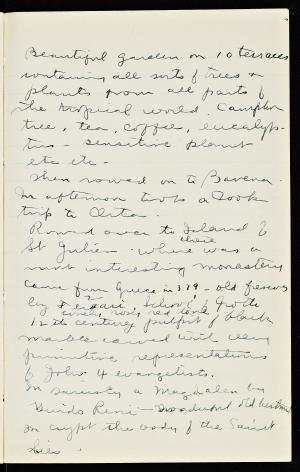 Beautiful garden on 10 terraces
containing all sorts of trees &
plants from all parts of
the tropical world. Camphor
tree, tea, coffee, eucalyp-
tus - sensitive plant
etc etc -
Then rowed on to Baveno.
In afternoon took a Cook
trip to Orta.
Rowed over to Island of
St Julien - where was a
most interesting monastery
came from Greece in 379 - old frescoes
by Ferrari,
12th century pulpit of black
marble carved with very
primitive representations
of John 4 evangelists.
In sacristy a Magdalen by
Guido Reni -
In crypt the body of the Saint
lies.